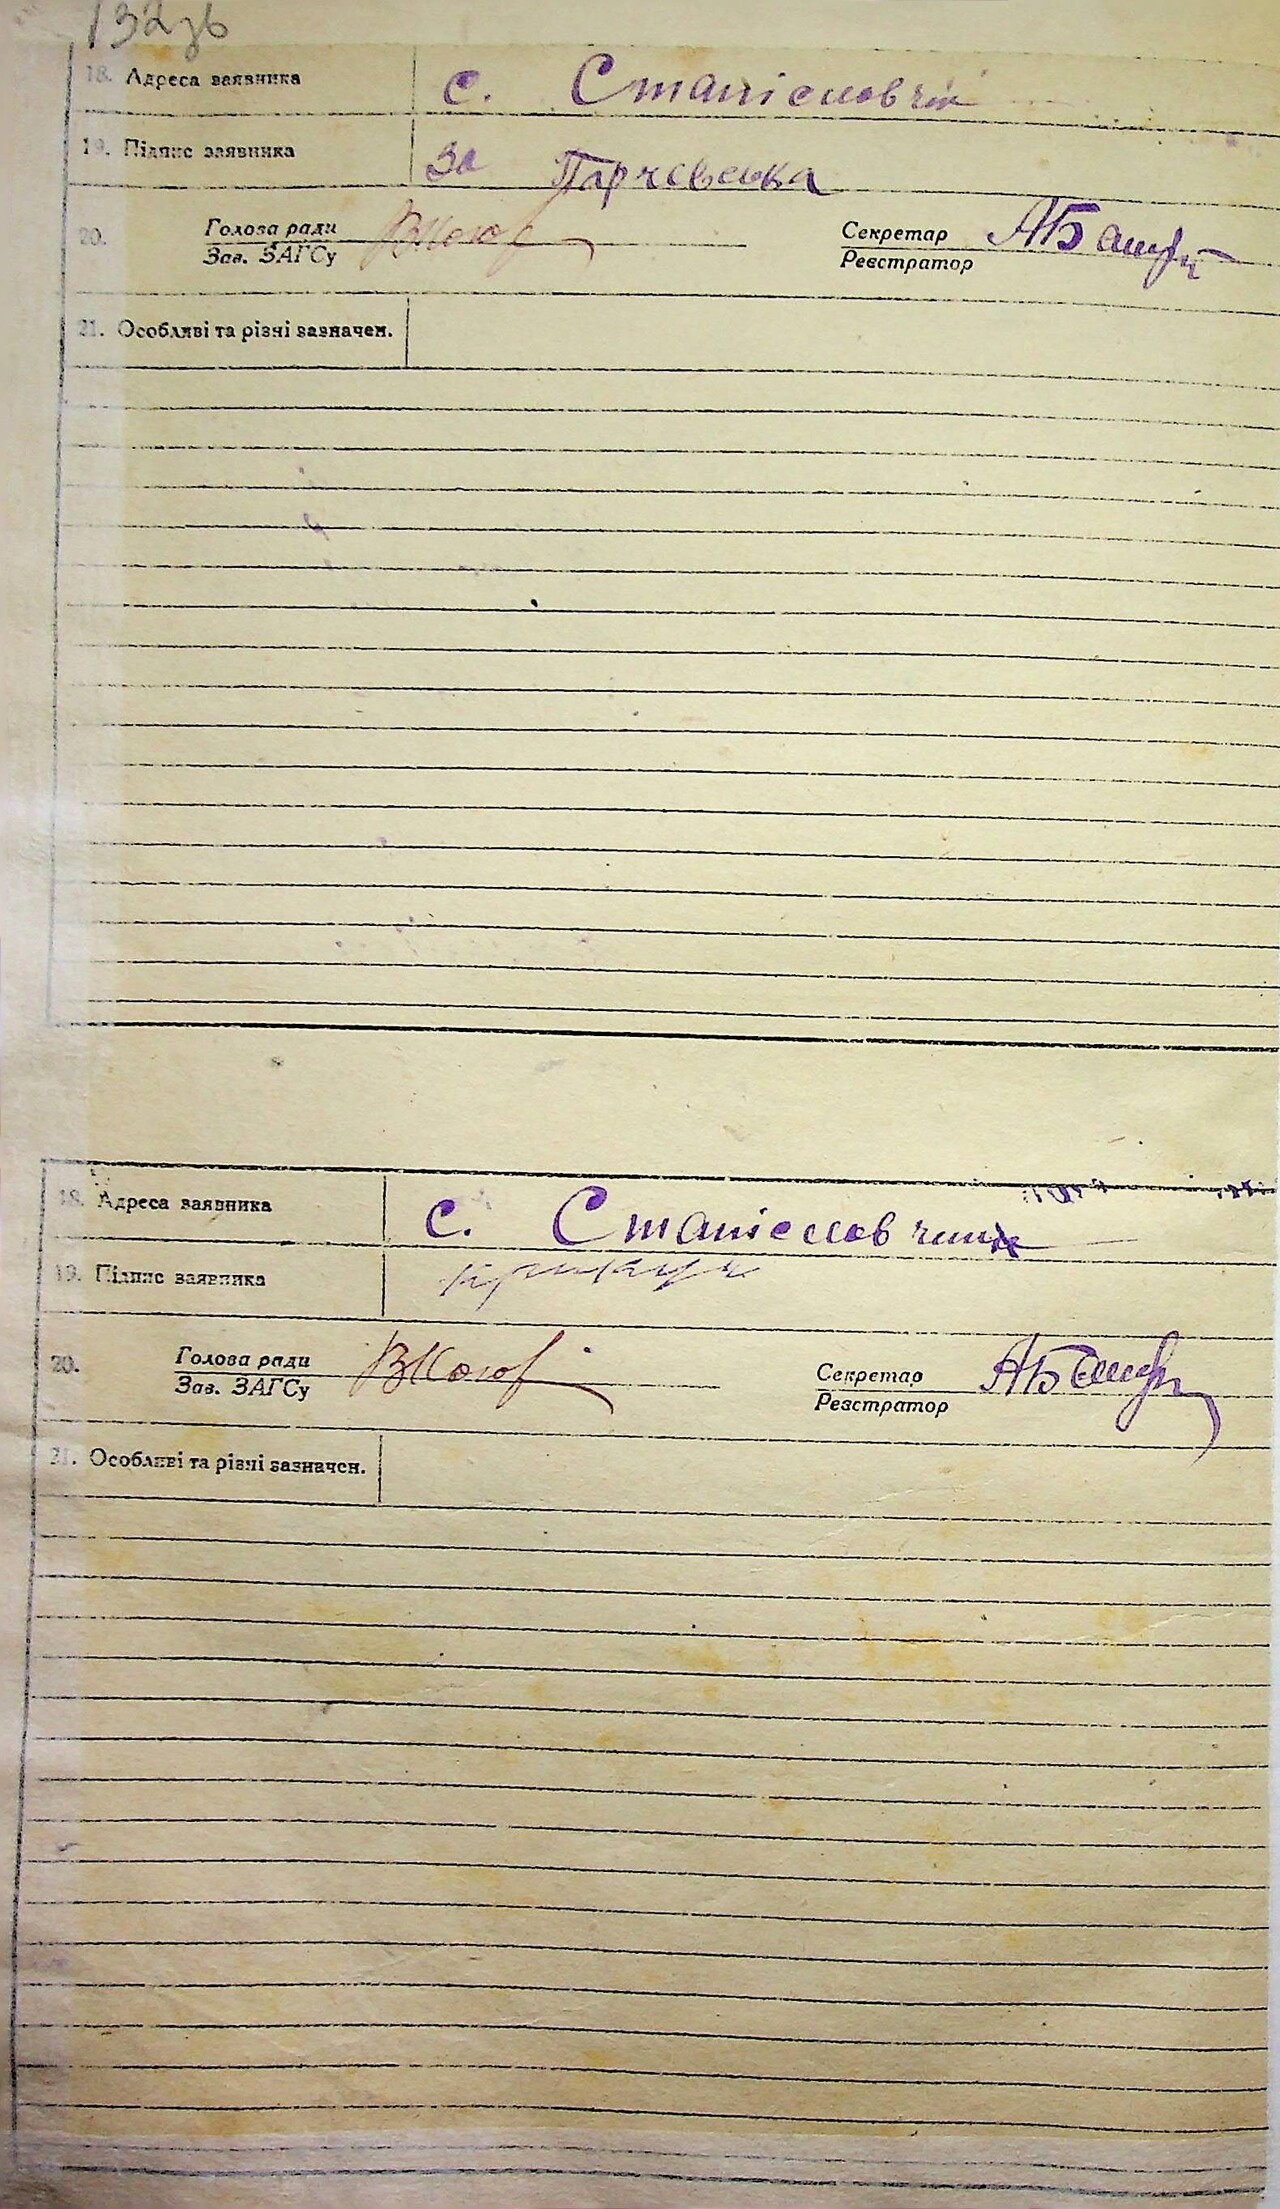 132зв
18. Адреса заявника с. Станіславчик
19. Підпис заявника За Парчевська
20. Голова ради
Зав. ЗАГСу
Секретар
Реєстратор
21. Особливі та різні зазначен.
18. Адреса заявника с. Станіславчик
19. Підпис заявника
20. Голова ради
Зав. ЗАГСу
Секретар
Реєстратор
21. Особливі та різні зазначен.